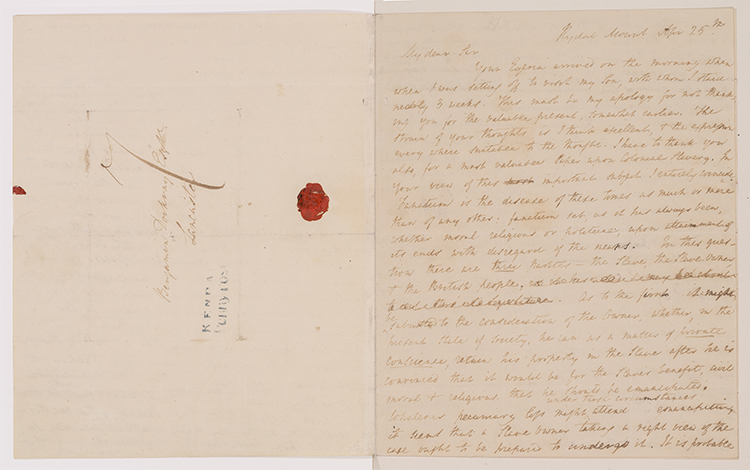 Benjamin Dockray Esqre
Lancaster
KENDAL
PENNY POST
Rydal Mount Apr 25th
My dear Sir
Your Egeria arrived on the morning when
when I was setting off to visit my Son, with whom I staid
nearly 3 weeks. This must be my apology for not thank-
ing you for the valuable present, somewhat earlier. The
strain of your thoughts is I think excellent, & the expression
every where suitable to the thought. I have to thank you
also, for a most valuable paper upon Colonial Slavery. In
your view of this important subject I entirely coincide.
Fanaticism is the disease of these times as much or more
than of any other; fanaticism set, as it has always been,
whether moral religious or political, upon attainment of
its ends with disregard of the means. In this ques-
tion there are three Parties – the Slave the Slave Owner
& the British people,
As to the first it might
be submitted to the consideration of the Owner, whether, in the
present state of society, he can as a matter of private
conscience, retain his property in the Slave after he is
convinced that it would be for the Slave's benefit, civil
moral & religious that he should be emancipated.
under these circumstances
Whatever pecuniary loss might attend emancipating
it seems that a Slave Owner taking a right view of the
case ought to be prepared to undergo it. It is probable